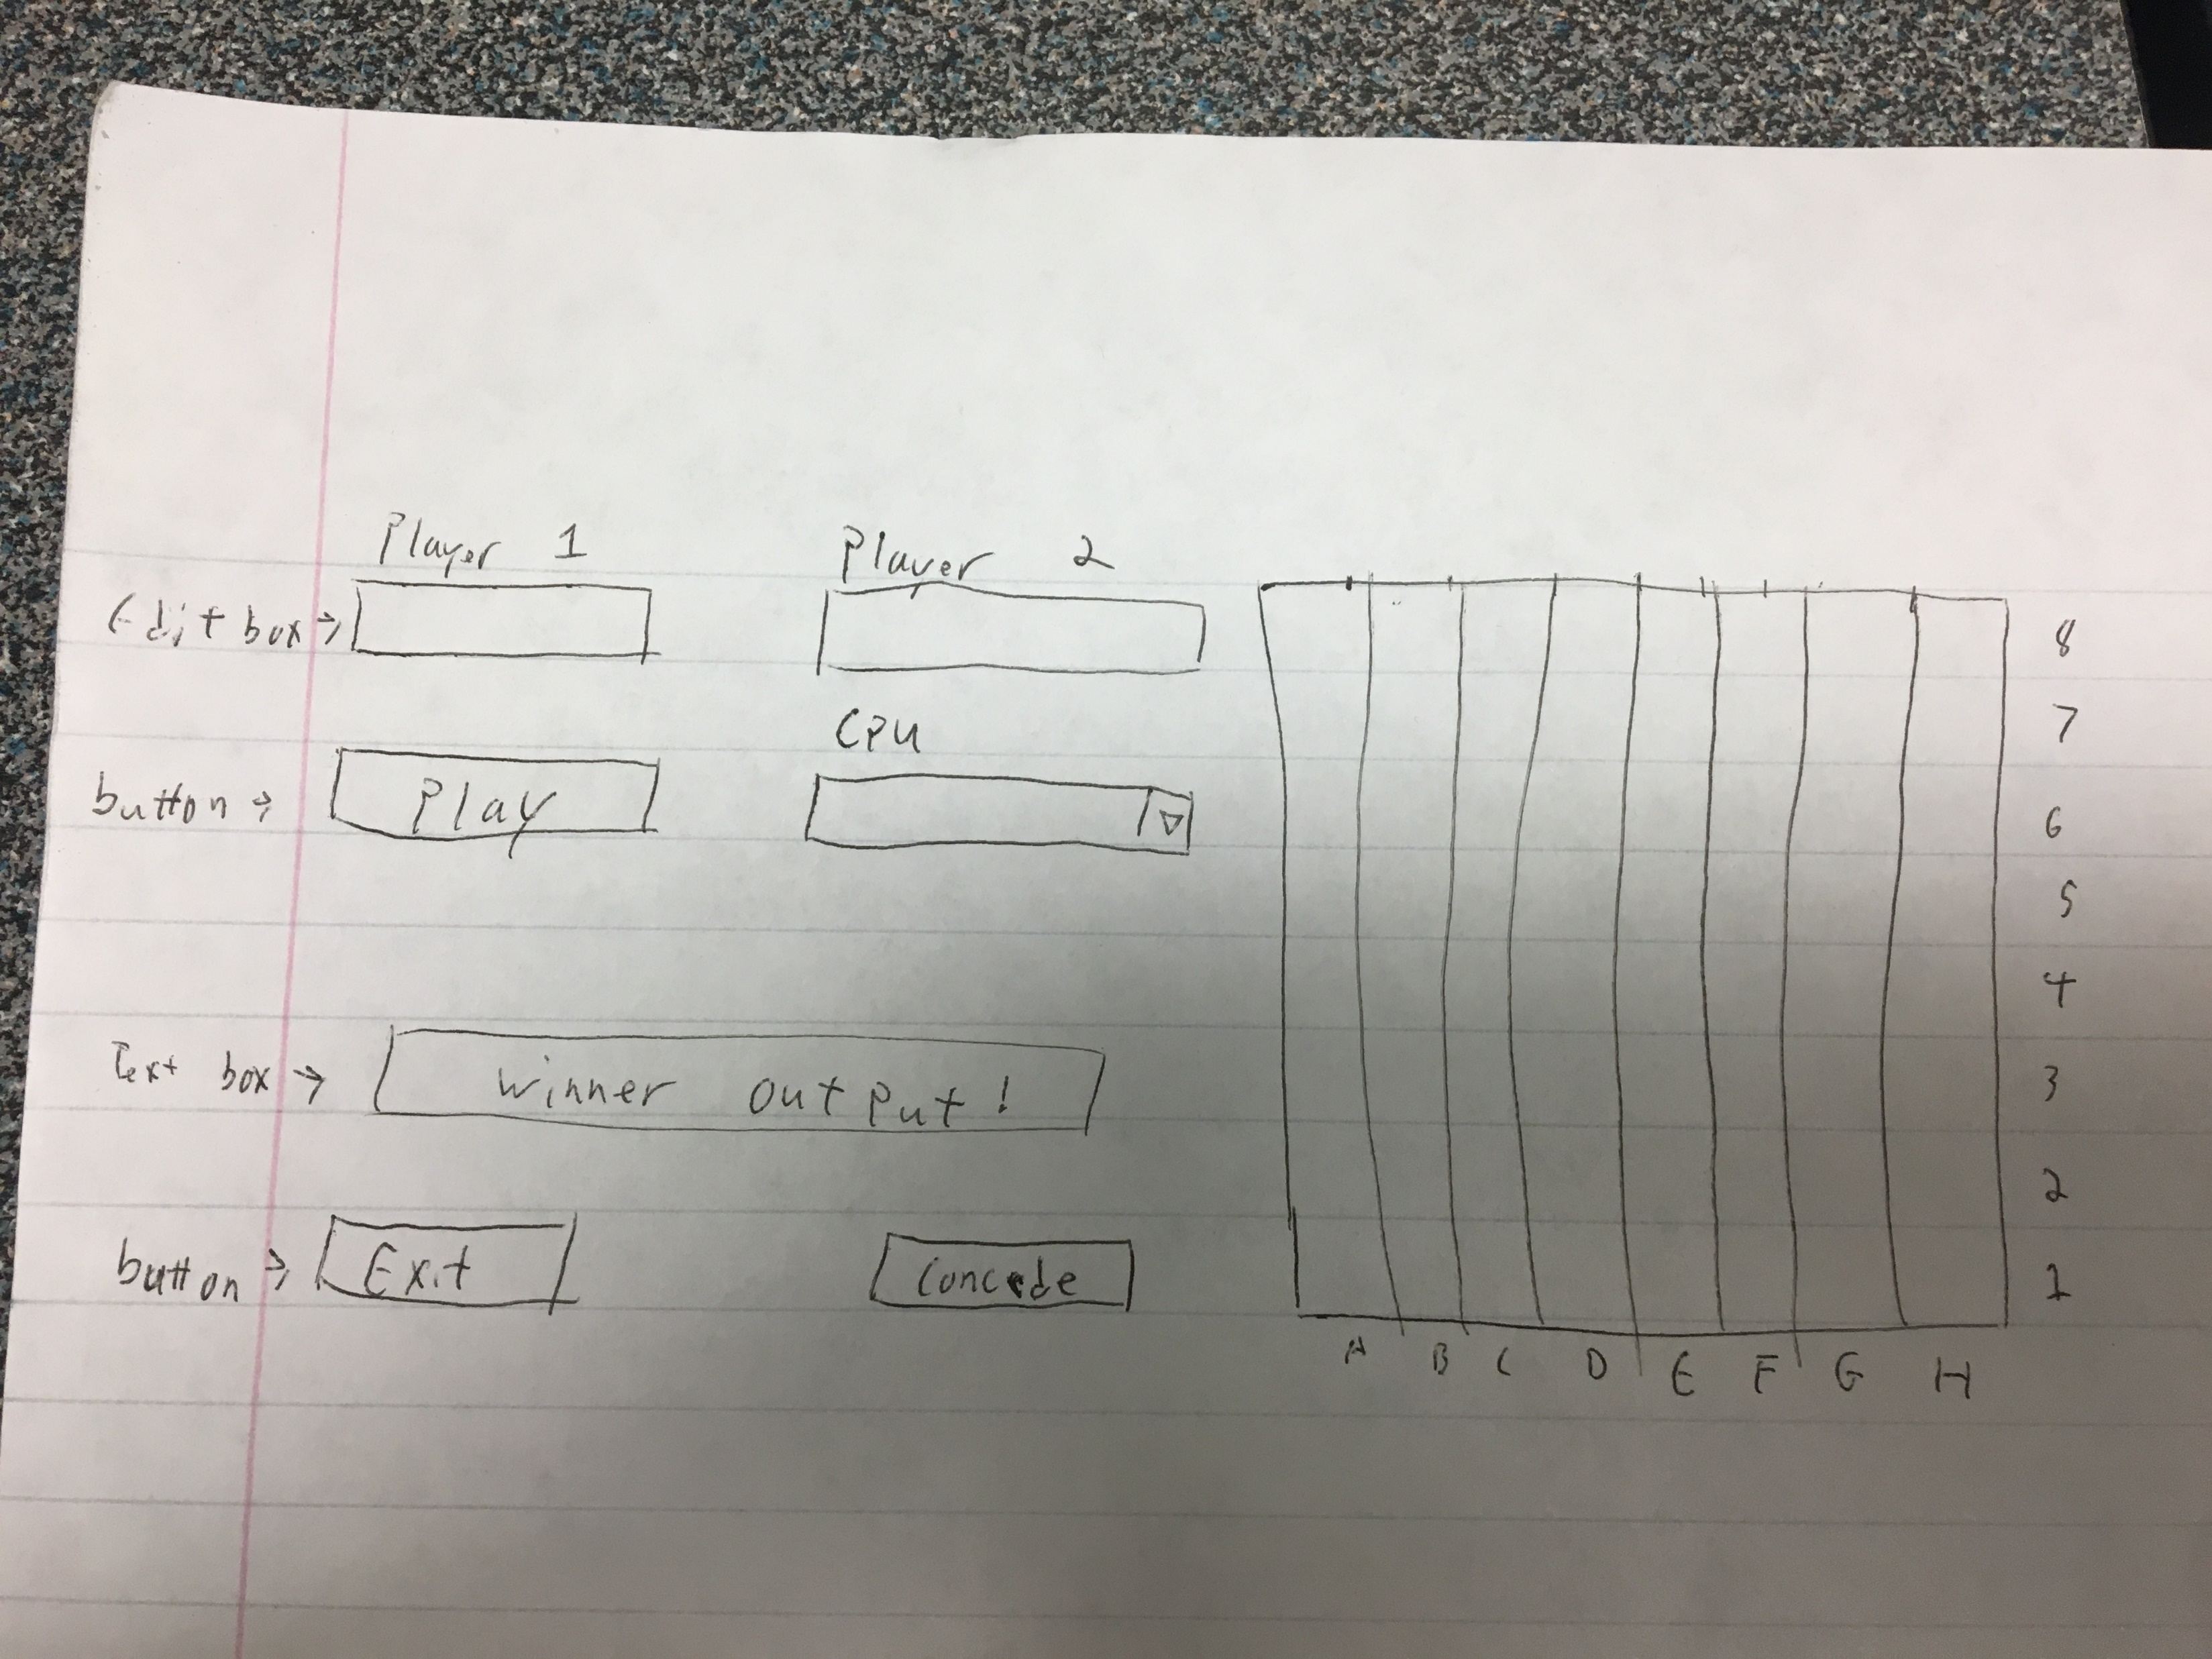 Player 1 Player 2
Edit box →
CPU
button → Play
Text box → winner output!
button → Exit Concede
8
7
6
5
4
3
2
1
A B C D E F G H